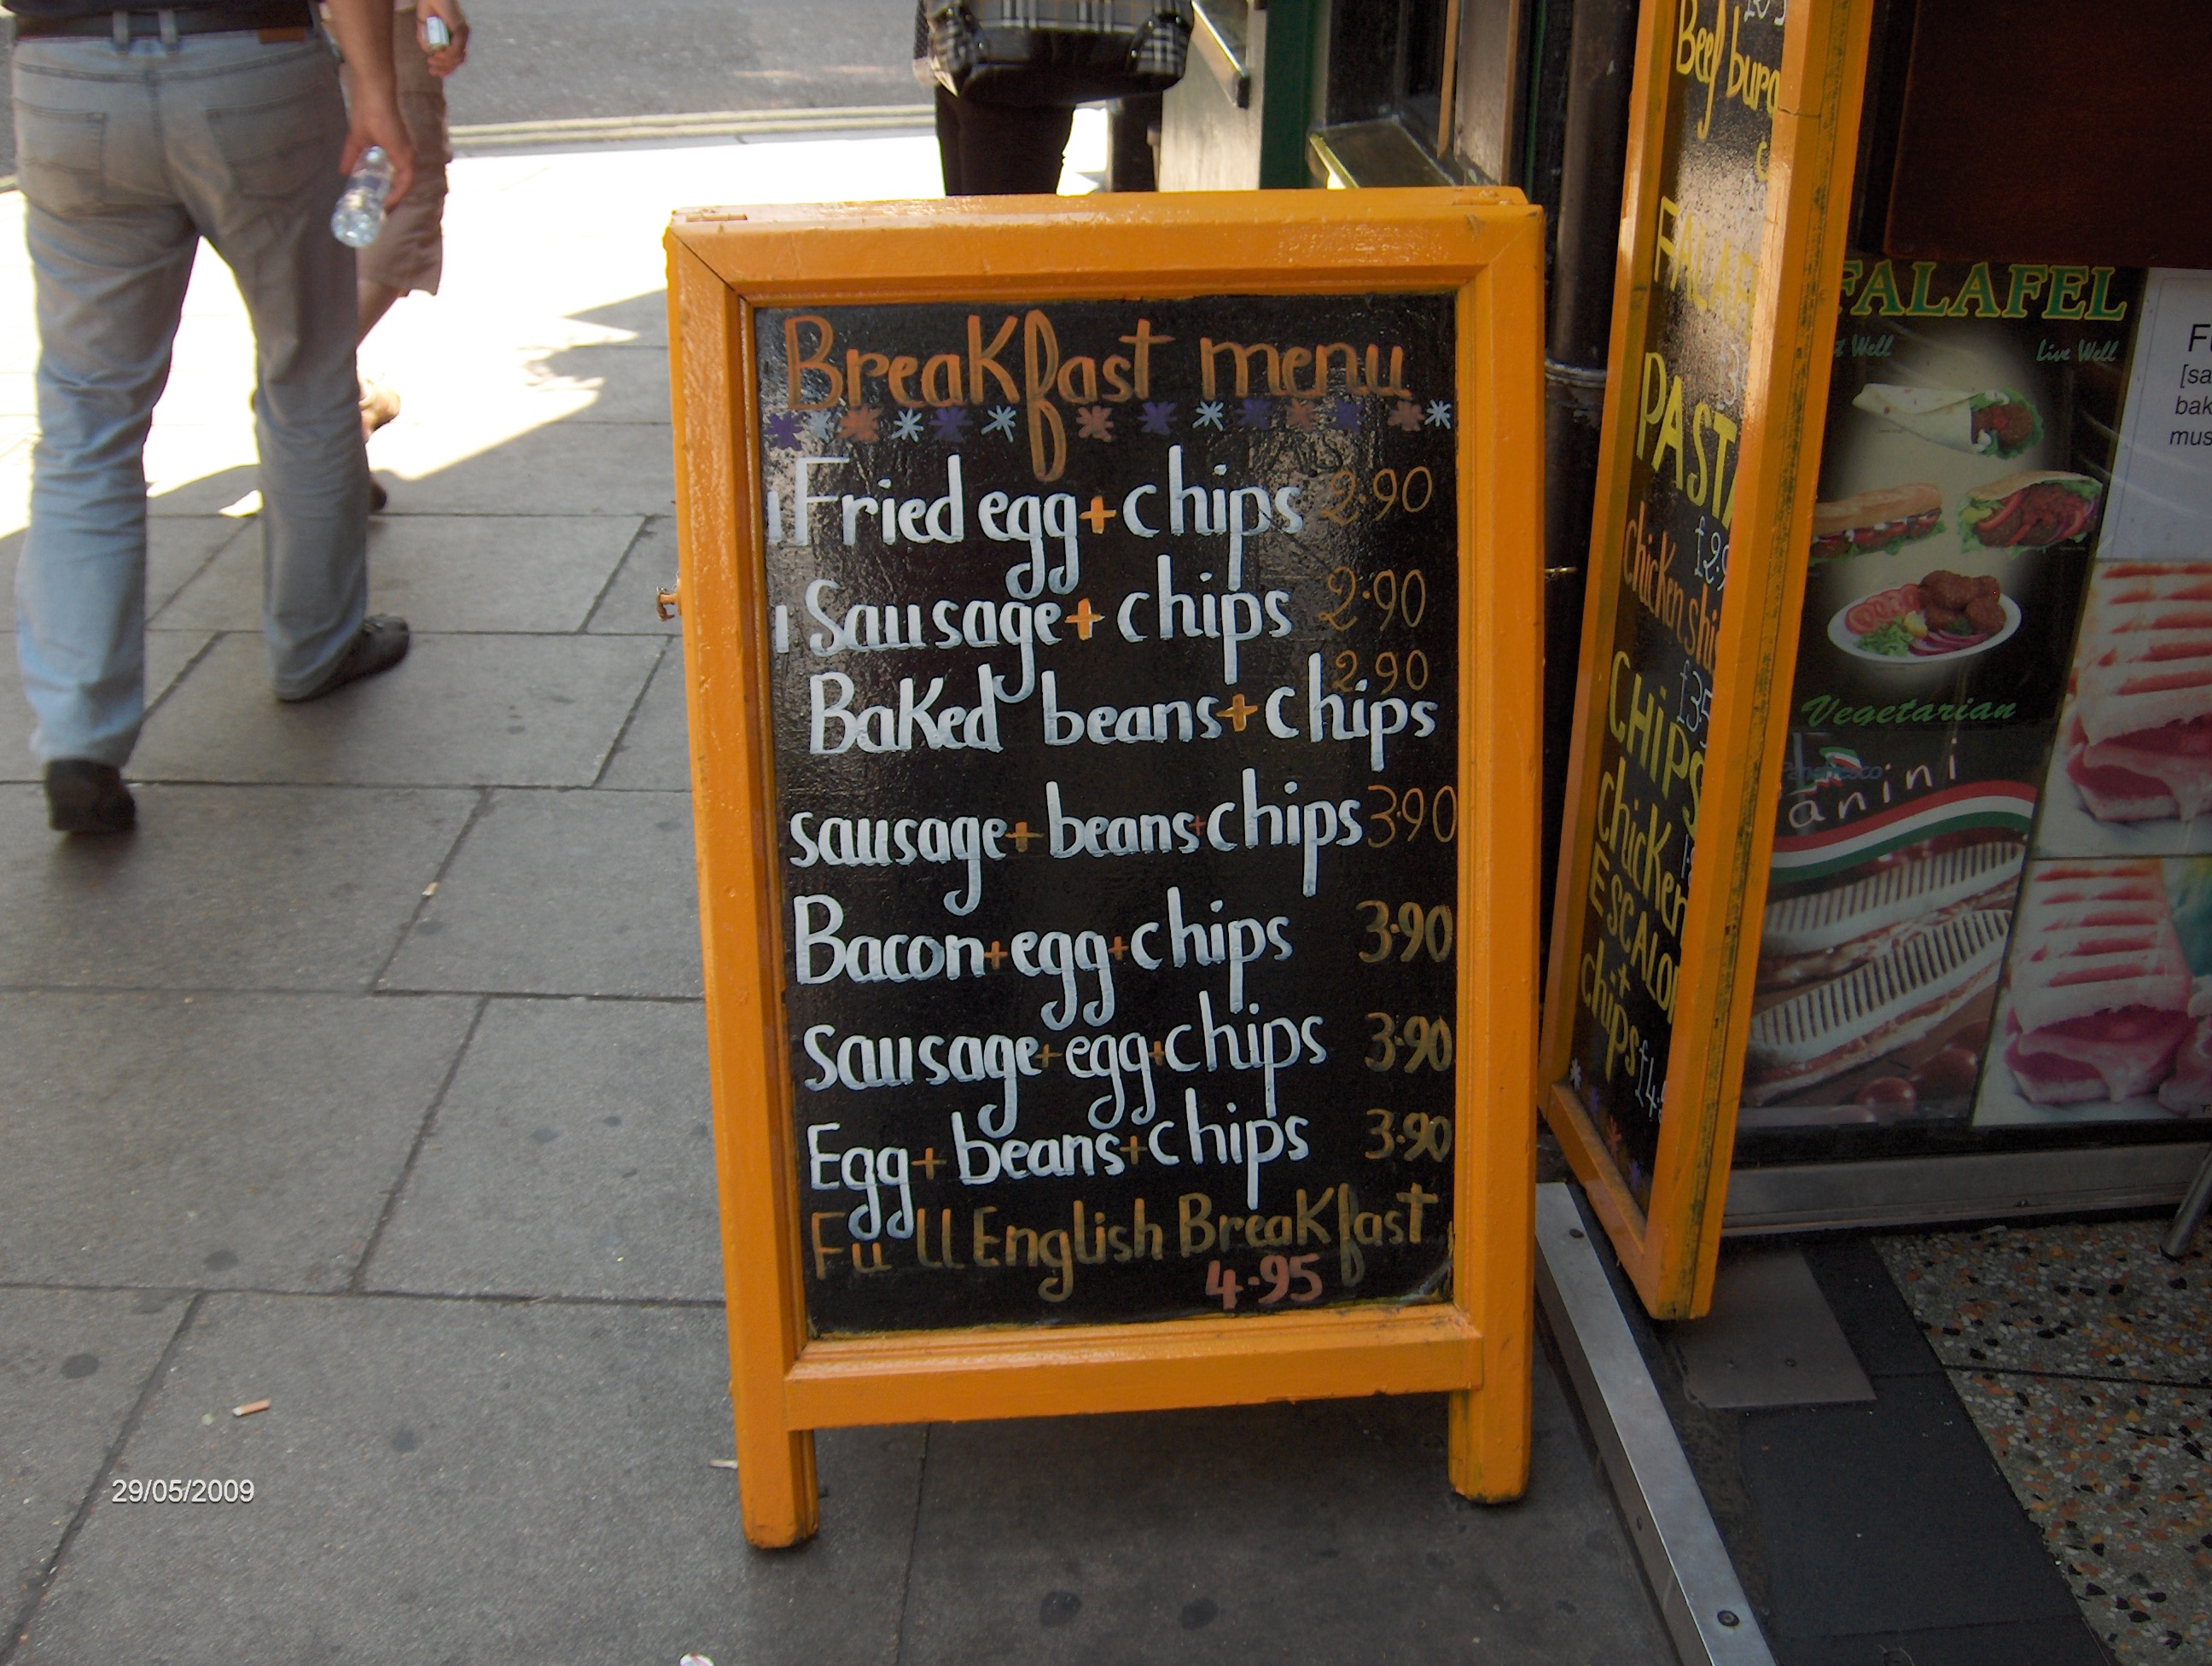 Breakfast menu
1 Fried egg + chips 2.90
1 Sausage + chips 2.90
2.90
Baked beans + chips
sausage + beans + chips 3.90
Bacon + egg + chips 3.90
Sausage + egg + chips 3.90
Egg + beans + chips 3.90
Full English Breakfast
4.95
Beef
PASTA
chicken
CHIPS
chicken
+
chips
FALAFEL
Live Well
Vegetarian
29/05/2009